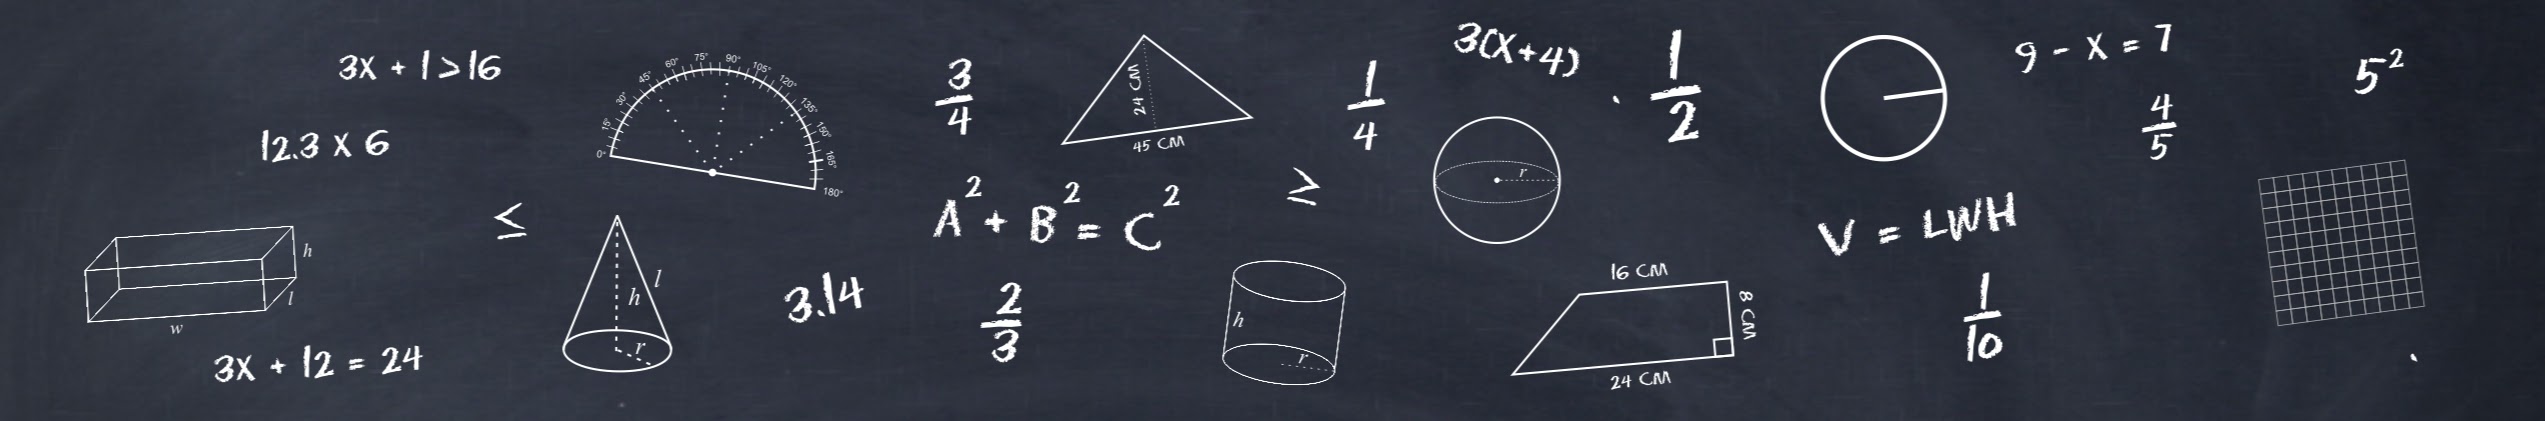 3X + 1 > 16
12.3 X 6
h
l
w
3X + 12 = 24
≤
0° 15° 30° 45° 60° 75° 90° 105° 120° 135° 150° 165° 180°
h
l
r
3.14
3/4
24 CM
45 CM
A² + B² = C²
2/3
1/4
≥
h
r
3(X+4)
1/2
r
16 CM
8 CM
24 CM
9 - X = 7
4/5
V = LWH
1/10
5²